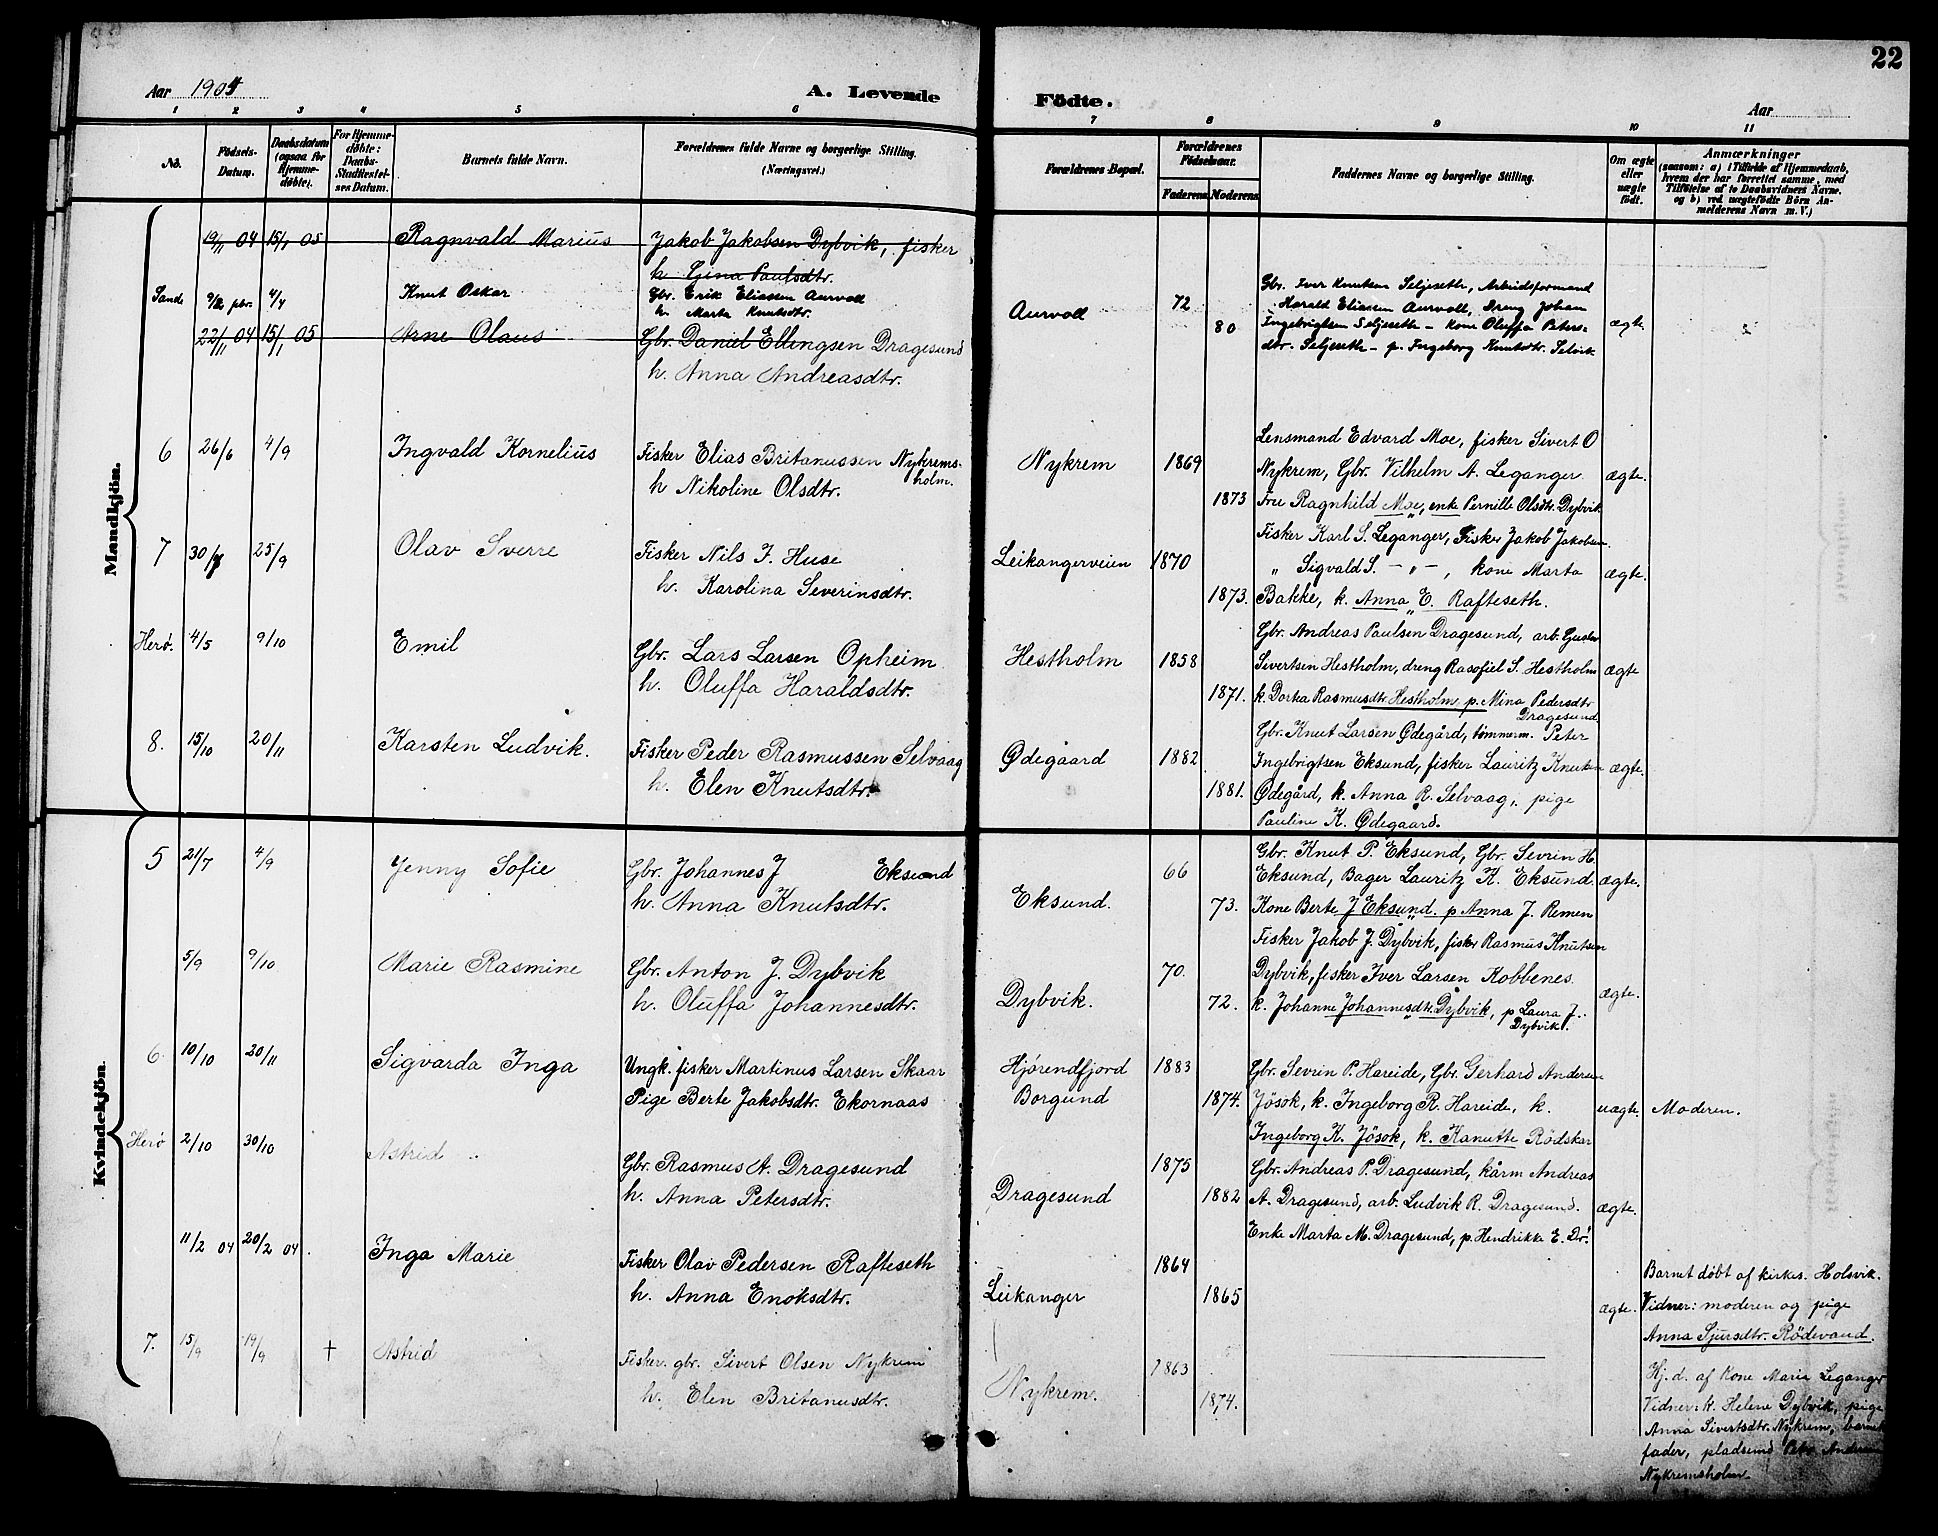 22
Aar 1904
A. Levende
Födte.
Aar
1 2 3 4 5 6
7 8 9 10 11
No.
Födsels-Datum.
Daabsdatum (ogsaa for Hjemme-döbte).
For Hjemme-döbte: Daabs-Stadfæstel-ses Datum.
Barnets fulde Navn.
Forældrenes fulde Navne og borgerlige Stilling. (Næringsvei.)
Forældrenes Bopæl.
Forældrenes Födselsaar.
Faderens Moderens
Faddernes Navne og borgerlige Stilling.
Om ægte eller uægte födt.
Anmærkninger
(saasom: a) i Tilfælde af Hjemmedaab,
hvem der har forrettet samme, med
Tilföielse af to Daabsvidners Navne.
og b) ved uægtefödte Börn An-
melderens Navn m. V.)
Mandkjön.
19/11 04 15/1 05 Ragnvald Marius Jakob Jakobsen Dybvik, fisker
h. Gina Paulsdtr.
Sande 9/2 pbr. 4/4 Knut Oskar Gbr. Erik Eliassen Aurvoll
h. Marta Knutsdtr.
Aurvoll 72
80
Gbr. Iver Knutsen Seljeseth, Arbeidsformand
Harald Eliasen Aurvoll, Dreng Johan
Ingebrigtsen Seljeseth - Kone Oluffa Peters-
dtr. Seljeseth - p. Ingeborg Knutsdtr. Selvik
ægte
22/11 04 15/1 05 Arne Olaus Gbr. Daniel Ellingsen Dragesund
h. Anna Andreasdtr.
6 26/6 4/9 Ingvald Kornelius Fisker Elias Britanussen Nykrems-
holm.
h Nikoline Olsdtr.
Nykrem 1869
1873
Lensmand Edvard Moe, fisker Sivert O
Nykrem, Gbr. Vilhelm A. Leganger
Fru Ragnhild Moe, enke Pernille Olsdtr. Dybvik
ægte.
7 30/7 25/9 Olav Sverre Fisker Nils J. Huse
h. Karolina Severinsdtr.
Leikangerveien 1870
1873.
Fisker Karl S. Leganger, Fisker Jakob Jakobsen
„ Sigvald S. -„-, kone Marta
Bakke, k. Anna E. Rafteseth.
ægte.
Herø. 4/5 9/10 Emil Gbr. Lars Larsen Opheim
h. Oluffa Haraldsdtr.
Hestholm 1858
1871.
Gbr. Andreas Paulsen Dragesund, arb. Gustav
Sivertsen Hestholm, dreng Rasofiel S. Hestholm
k. Dorka Rasmusdtr. Hestholm p. Mina Pedersdtr
Dragesund.
ægte
8. 15/10 20/11 Karsten Ludvik. Fisker Peder Rasmussen Selvaag
h. Elen Knutsdtr.
Ødegaard 1882
1881.
Gbr. Knut Larsen Ødegård, tømmerm. Peter
Ingebrigtsen Eksund, fisker Lauritz Knutsen
Ødegård, k. Anna R. Selvaag, pige
Pauline K. Ødegaard.
ægte.
Kvindekjön.
5 21/7 4/9 Jenny Sofie Gbr. Johannes J Eksund
h. Anna Knutsdtr.
Eksund. 66
73.
Gbr. Knut P. Eksund, Gbr. Sevrin H.
Eksund, Bager Lauritz K. Eksund.
Kone Berte J Eksund. p Anna J. Remen
ægte.
5/9 9/10 Marie Rasmine Gbr. Anton J. Dybvik
h. Oluffa Johannesdtr.
Dybvik. 70.
72.
Fisker Jakob J. Dybvik, fisker Rasmus Knutsen
Dybvik, fisker Iver Larsen Kobbenes.
k. Johanne Johannesdtr. Dybvik, p Laura J.
Dybvik.
ægte.
6. 10/10 20/11 Sigvarda Inga Ungk. fisker Martinus Larsen Skaar
Pige Berte Jakobsdtr. Ekornaas
Hjørendfjord 1883
Borgund 1874.
Gbr. Sevrin P. Hareide, Gbr. Gerhard Andersen
Jösok, k. Ingeborg R. Hareide, k.
Ingeborg K. Jösok, k. Kanutte Rödskar
uægte. Moderen.
Herö 2/10 30/10 Astrid Gbr. Rasmus A. Dragesund
h. Anna Petersdtr.
Dragesund 1875
1882
Gbr. Andreas P. Dragesund, kårm Andreas
A. Dragesund, arb. Ludvik R. Dragesund.
Enke Marta M. Dragesund, p. Hendrikke E. Dr.
ægte.
11/2 04 20/2 04. Inga Marie Fisker Olav Pedersen Rafteseth
h. Anna Enoksdtr.
Leikanger 1864
1865
ægte.
Barnet döbt af kirkes. Holsvik.
Vidner: moderen og pige
Anna Sjursdtr. Rödevand.
7. 15/9 19/9 † Astrid Fisker. gbr. Sivert Olsen Nykrem
h. Elen Britanusdtr.
Nykrem. 1863
1874.
Hj. d. af Kone Maria Leganger
Vidner: k. Helene Dybvik, pige
Anna Sivertsdtr. Nykrem, barnets
fader, pladsmd Andersen
Nykremsholm.